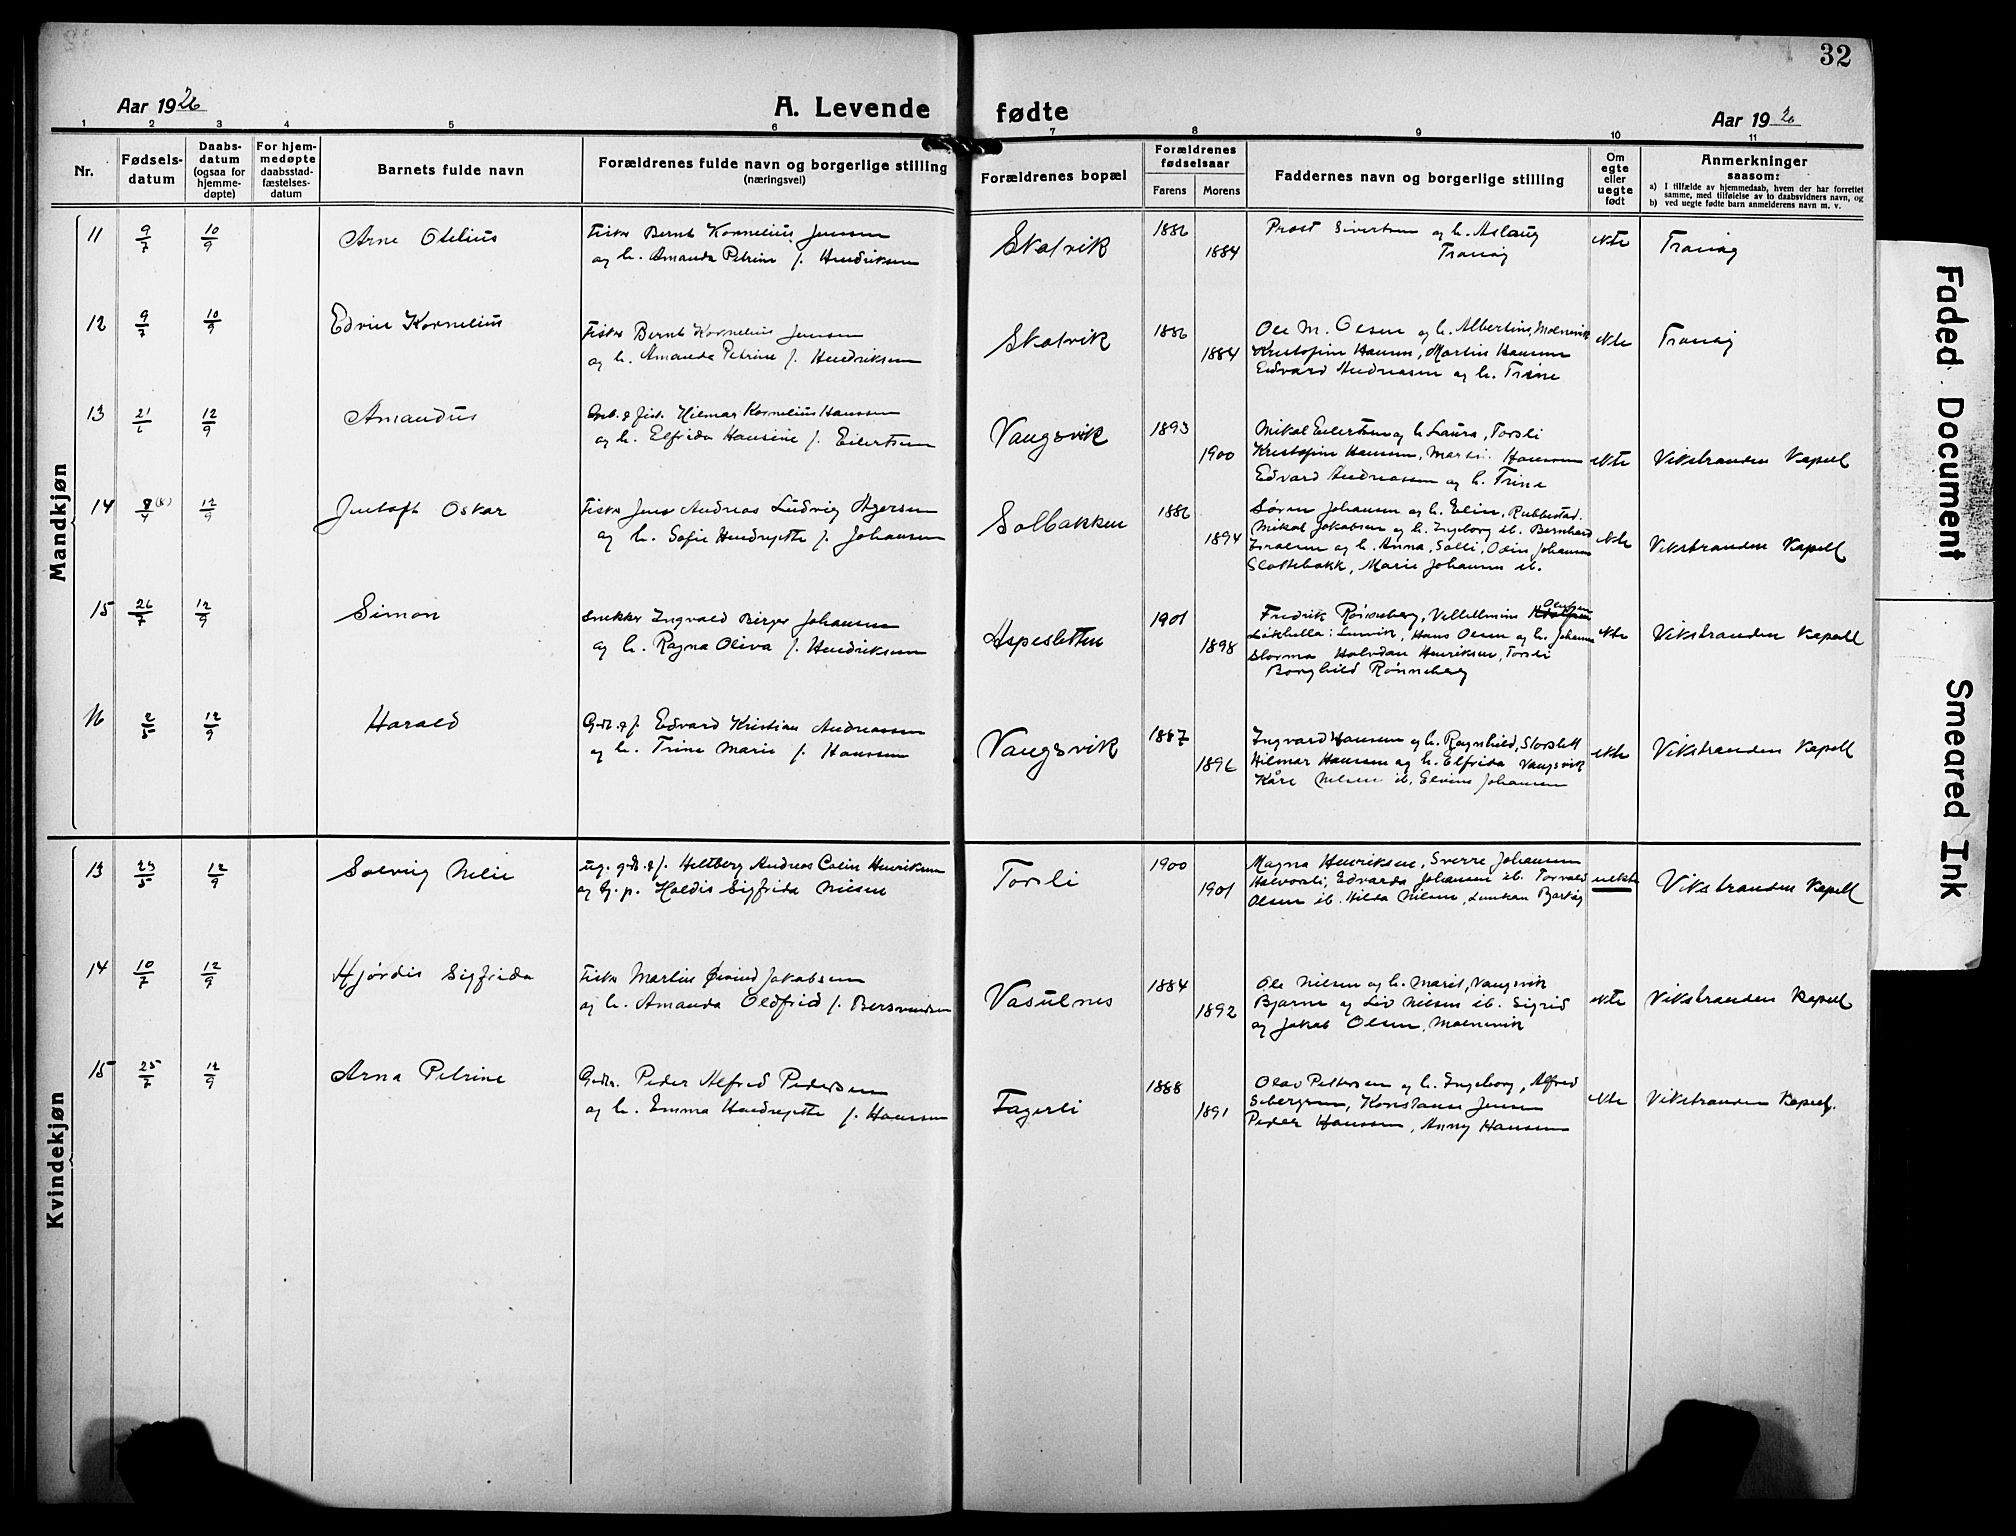 32
Aar 1926
A. Levende fødte
Aar 1926
1 2 3 4 5 6 7 8 9 10 11
Nr.
Fødsels-
datum
Daabs-
datum
(ogsaa for
hjemme-
døpte)
For hjem-
medøpte
daabsstad-
fæstelses-
datum
Barnets fulde navn
Forældrenes fulde navn og borgerlige stilling
(næringsvei)
Forældrenes bopæl
Forældrenes
fødselsaar
Farens Morens
Faddernes navn og borgerlige stilling
Om
egte
eller
uegte
født
Anmerkninger
saasom:
a) I tilfælde av hjemmedaab, hvem der har forrettet
samme, med tilføielse av to daabsvidners navn, og
b) ved uegte fødte barn anmelderens navn m. v.
Mandkjøn
11 9/7 10/9 Arne Otelius
Fisker Bernt Kornelius Jenssen
og h. Amanda Petrine f. Hendriksen
Skatvik 1886 1884
Prost Sivertsen og h. Aslaug
Tranøy
ekte Tranøy
12 9/7 10/9 Edvin Kornelius
Fisker Bernt Kornelius Jenssen
og h. Amanda Petrine f. Hendriksen
Skatvik 1886 1884
Ole M. Olsen og h. Albertine, Molnevik
Kristofine Hansen, Martin Hansen
Edvard Andreasen og h. Trine
ekte Tranøy
13 21/6 12/9 Amandus
Grb. & fisk. Hilmar Kornelius Hanssen
og h. Elfrida Hansine f. Eilertsen
Vangsvik 1893 1900
Mikal Eilertsen og h. Laura, Torsli
Kristofine Hansen, Martin Hansen
Edvard Andreassen og h. Trine
ekte Vikstranden Kapell
14 8/4 (8) 12/9 Jentoft Oskar
Fisker Jens Andreas Ludvig Agersen
og h. Sofie Hendrejette f. Johansen
Solbakken 1886 1894
Søren Johansen og h. Elin, Rubbestad.
Mikal Jakobsen og h. Ingeborg ib. Bernhard
Israelsen og h. Anna, Solli, Odin Johansen
Slottebakk, Marie Johansen ib.
ekte Vikstranden Kapell
15 26/7 12/9 Simon
Snekker Ingvald Birger Johansen
og h. Ragna Oliva f. Hendriksen
Aspesletten 1901 1898
Fredrik Rønneberg, Vellelmine Olufsen
Hans Olsen og h. Johanna
Halvdan Henriksen, Torsli
Borghild Rønneberg
ekte Vikstranden Kapell
16 2/5 12/9 Harald
Gdbr. & f. Edvard Kristian Andreassen
og h. Trine Marie f. Hanssen
Vangsvik 1887 1896
Ingvard Hansen og h. Ragnhild, Storslett
Hilmar Hanssen og h. Elfrida Vangsvik
Kåre Nilsen ib, Elvine Johansen
ekte Vikstranden Kapell
Kvindekjøn
13 23/5 12/9 Solveig Nelie
ug. gdbr. & f. Heltberg Andreas Colin Henriksen
og tj. p. Haldis Sigfrida Nilsen
Torsli 1900 1901
Magna Henriksen, Sverre Johansen
Halvorsli, Edvarda Johansen ib. Torvald
Olsen ib. Hilda Nilsen, Lunkan Bjorkåy
uekte Vikstranden Kapell
14 10/7 12/9 Hjørdis Sigfrida
Fisker Martin Øivind Jakobsen
og h. Amanda Oldfrid f. Bersvendsen
Vasulnes 1884 1892
Ole Nilsen og h. Marit, Vangsvik
Bjarne og Liv Nilsen ib. Sigrid
og Jakob Olsen, Molnevik
ekte Vikstranden Kapell
15 25/7 12/9 Arna Petrine
Gdbr. Peder Alfred Pedersen
og h. Emma Hendrejette f. Hanssen
Fagerli 1888 1891
Olav Pettersen og h. Ingeborg, Alfred
Sebergsen, Konstanse Jensen
Peder Hanssen, Anny Hanssen
ekte Vikstranden Kapell.
Faded Document
Smeared Ink